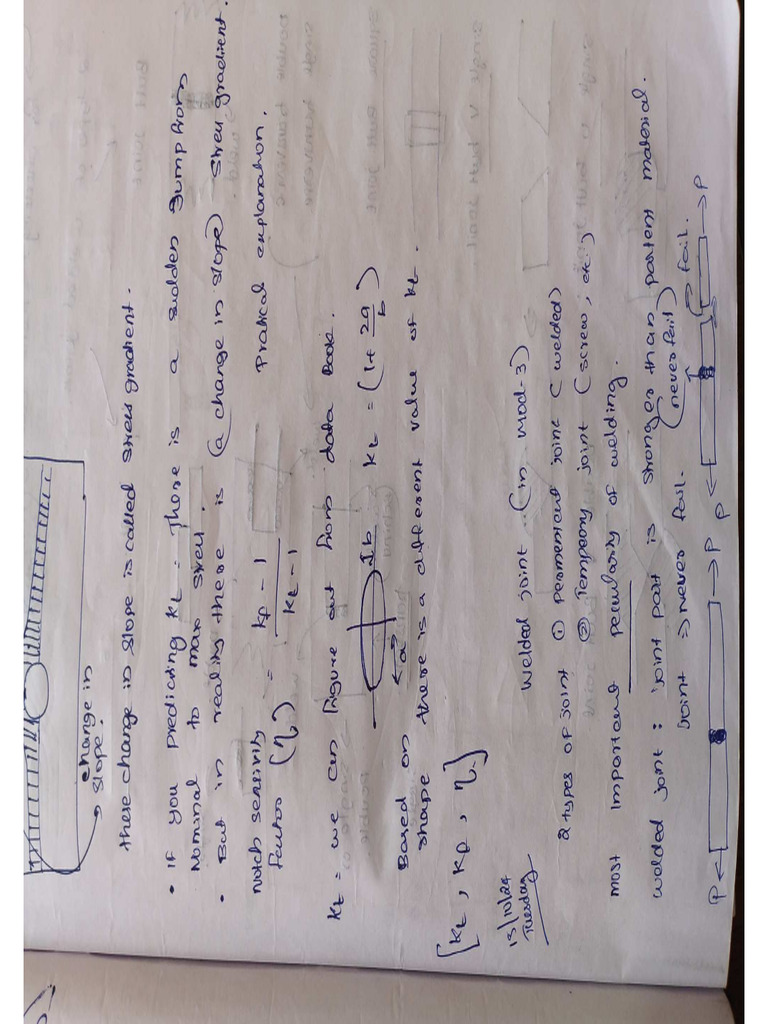 change in
slope.
there change in slope is called stress gradient.
• If you predicting Kt = There is a sudden Jump from
Nominal to max stress.
• But in reality there is (a change in slope) stress gradient.
Notch sensitivity
(η) = Kf - 1 / Kt - 1 Pratical explanation.
Kt = we can figure out from data Book.
a b Kt = (1+ 2a/b)
Based on
shape there is a different value of Kt.
[Kt, Kf, η]
15/10/24
Tuesday
Welded joint (in mod-3)
2 types of Joint ① Permenient joint (welded)
② Tempoary joint (screw, etc.)
most Important pecularity of welding.
welded joint : joint part is stronger than partent material.
Joint ⇒ Never fail. (never fail)
P P P fail. P